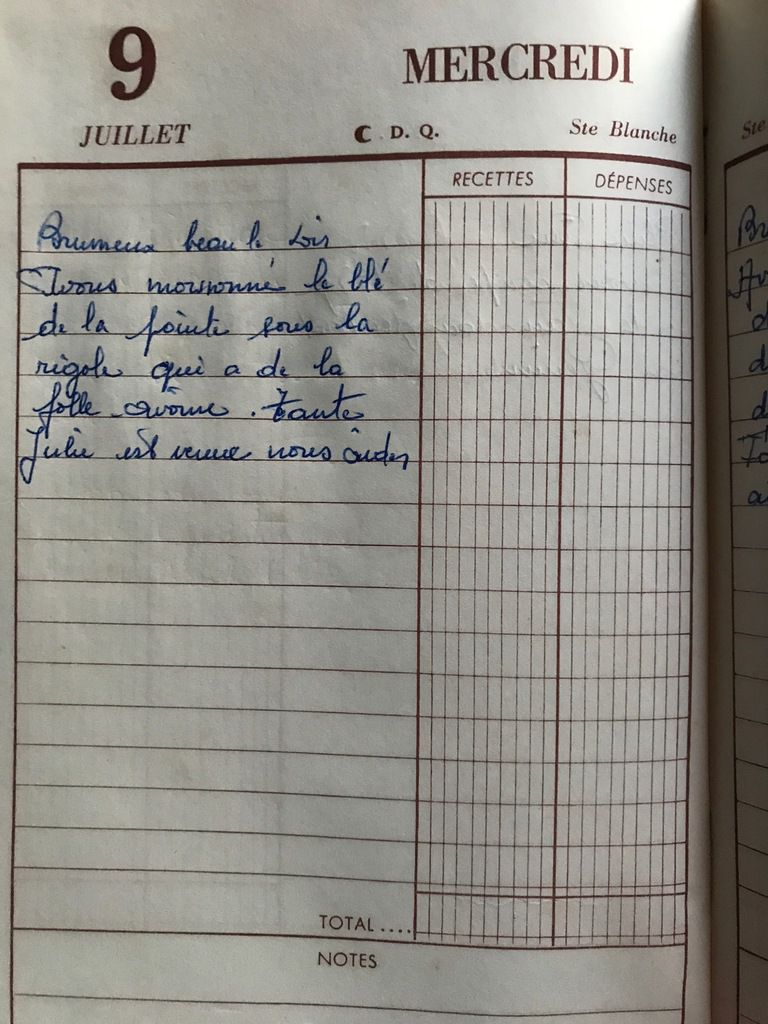 9 MERCREDI
JUILLET C. D. Q. Ste Blanche Ste
RECETTES DÉPENSES
Brumeux beau le soir
Avons moissonné le blé
de la pointe sous la
rigole qui a de la
folle avoine. Tante
Julie est venue nous aider
TOTAL ....
NOTES